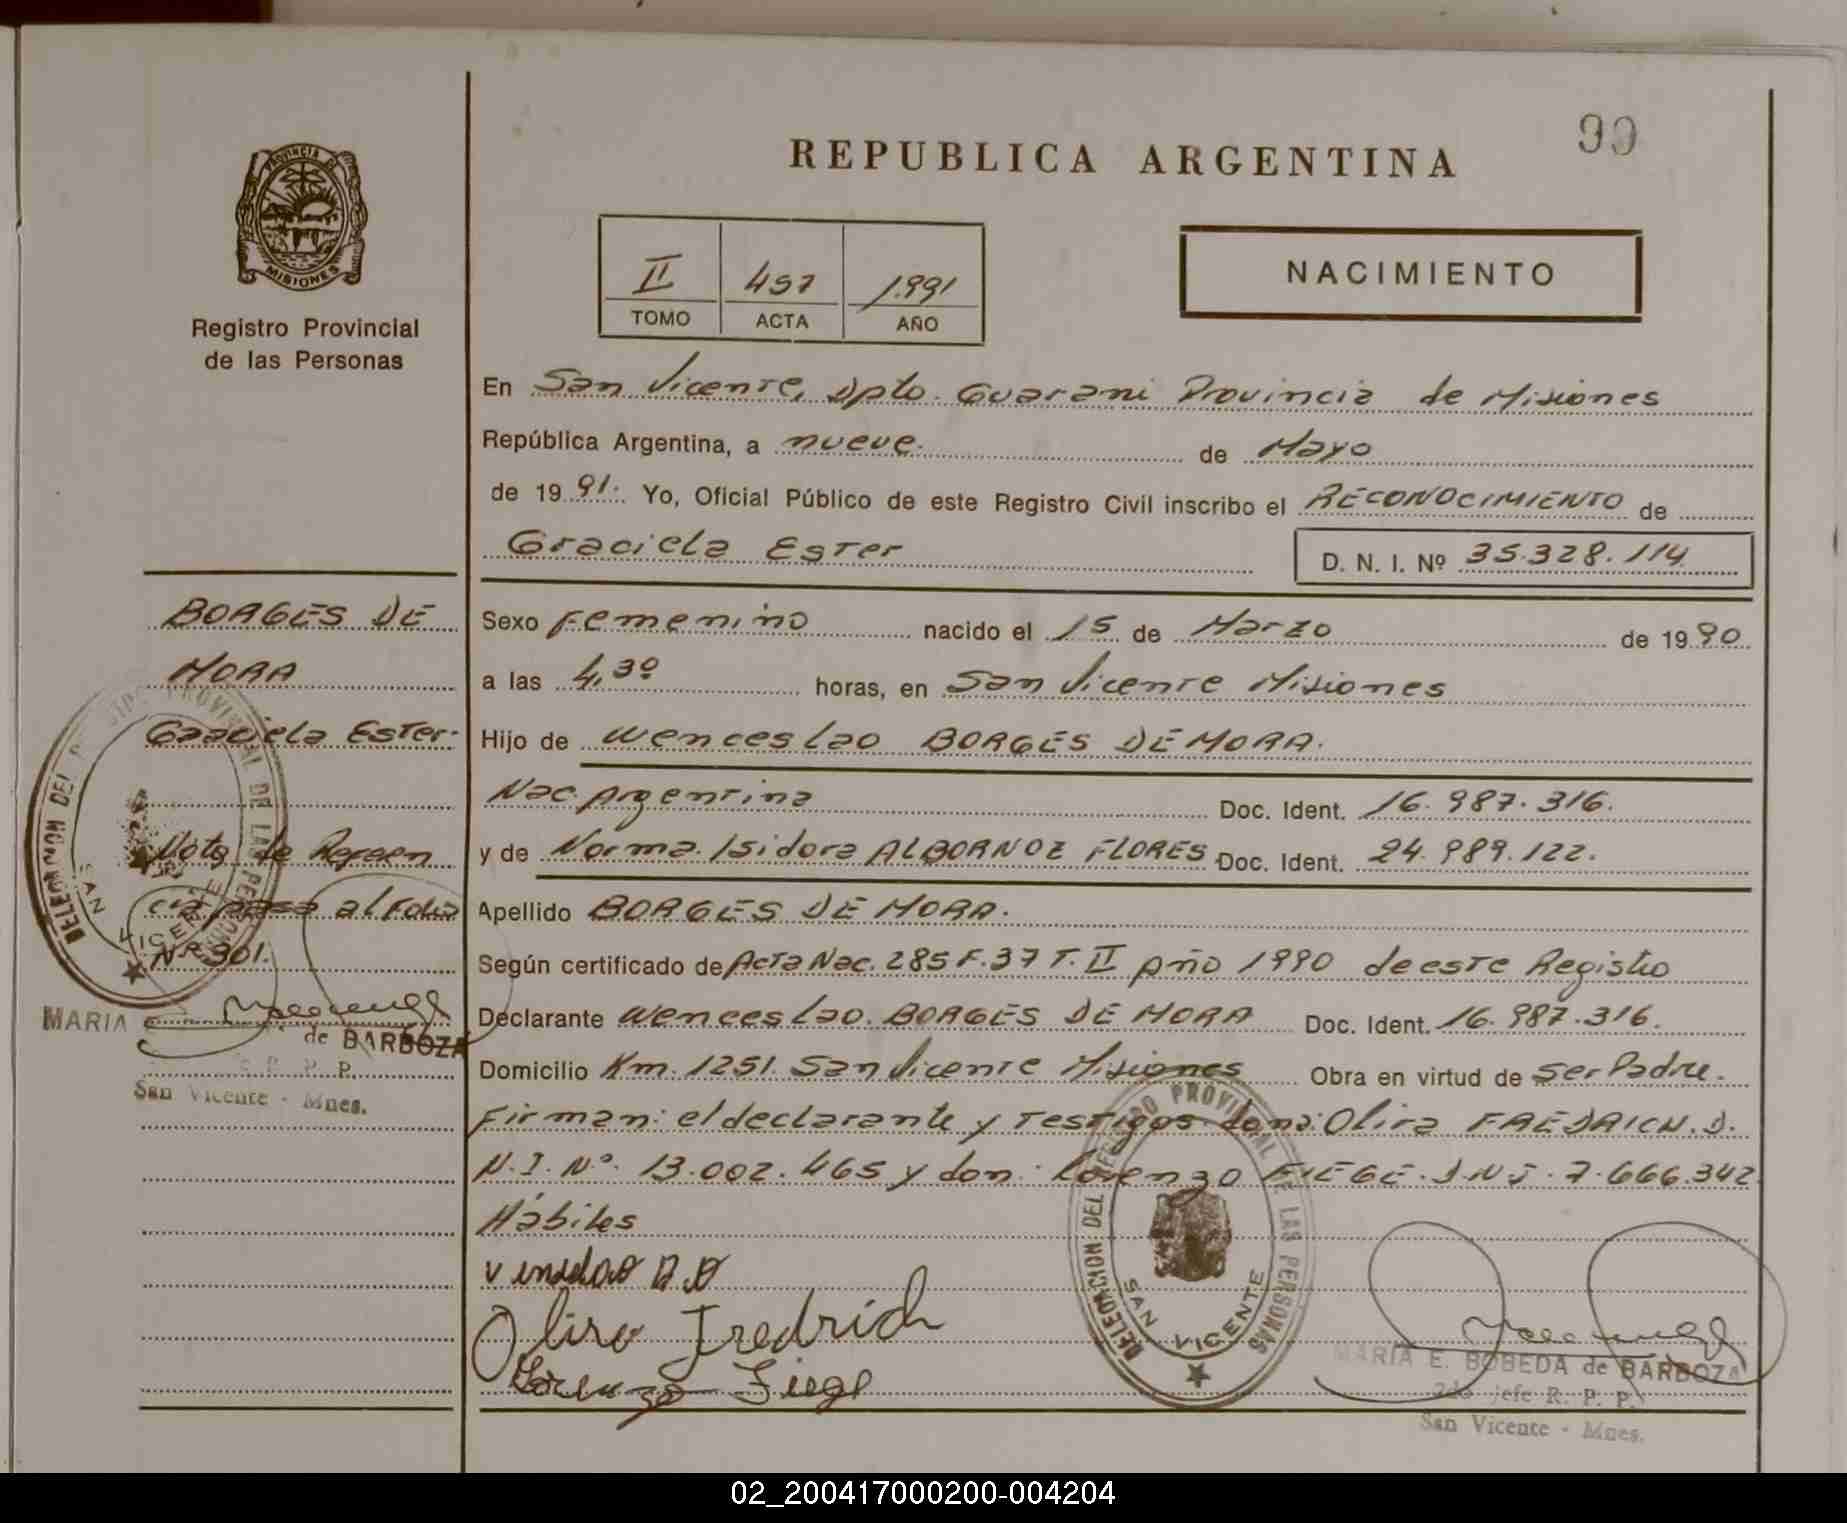 99
REPUBLICA ARGENTINA
PROVINCIA DE
MISIONES
Registro Provincial
de las Personas
II 457 1.991
TOMO ACTA AÑO
NACIMIENTO
En San Vicente, Dpto. Guarani Provincia de Misiones
República Argentina, a nueve. de Mayo
de 1991. Yo, Oficial Público de este Registro Civil inscribo el RECONOCIMIENTO de
Graciela Ester D. N. I. Nº 35.328.114
BORGES DE
MORA
Graciela Ester.
Nota de Referen
cia pasa al Folio
Nº 301.
MARIA E. de BARBOZA
R. P. P.
San Vicente - Mnes.
Sexo Femenino nacido el 15 de Marzo de 1990
a las 4,30 horas, en San Vicente Misiones
Hijo de Wenceslao BORGES DE MORA.
Nac. Argentina Doc. Ident. 16.987.316.
y de Norma Isidora ALBORNOZ FLORES Doc. Ident. 24.989.122.
Apellido BORGES DE MORA.
Según certificado de Acta Nac. 285 F. 37 T. II Año 1990 de este Registro
Declarante Wenceslao BORGES DE MORA Doc. Ident. 16.987.316.
Domicilio Km. 1251. San Vicente Misiones Obra en virtud de ser Padre.
Firman: el declarante y Testigos doña: Olira FREDRICH. D.
N.I. Nº. 13.002.465 y don: Lorenzo FIEGE. D.N.I. 7.666.342
Hábiles
Olira Fredrich
Lorenzo Fiege
DELEGACION DEL REGISTRO PROVINCIAL DE LAS PERSONAS
SAN VICENTE
MARIA E. BOBEDA de BARBOZA
2do jefe R. P. P.
San Vicente - Mnes.
02_200417000200-004204